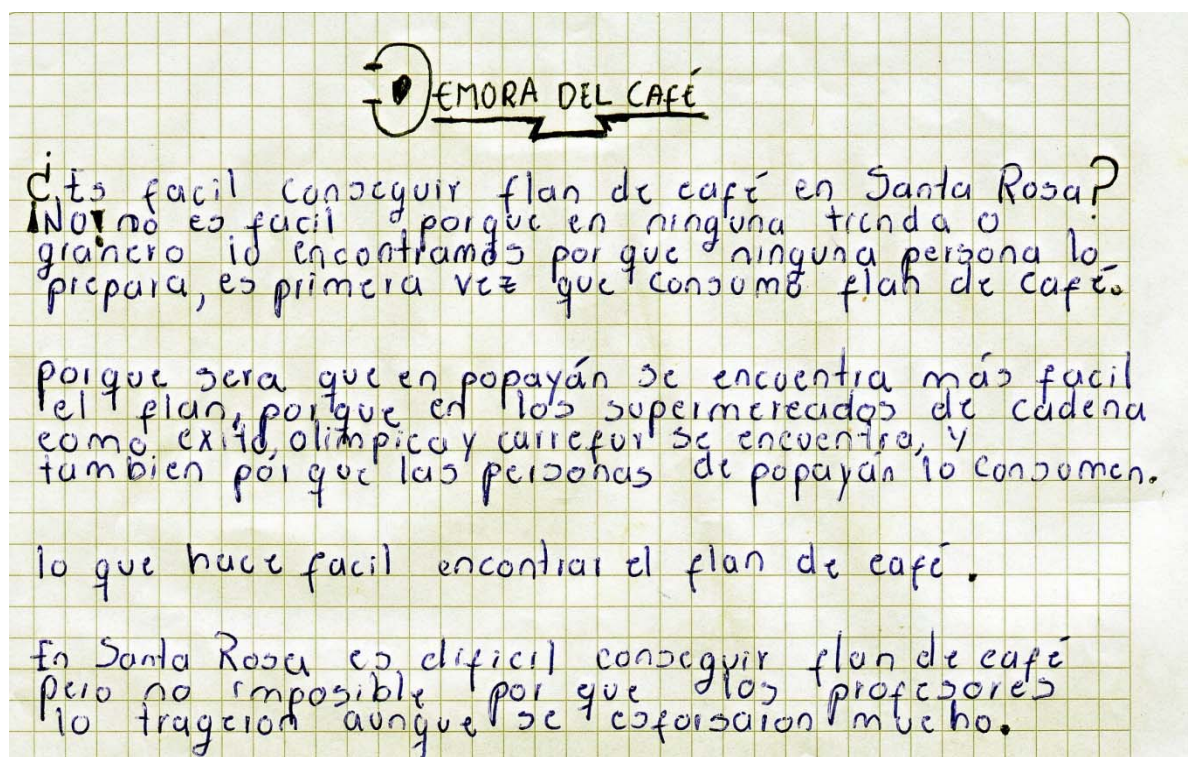 DEMORA DEL CAFÉ
¿Es facil conseguir flan de café en Santa Rosa?
¡No! no es facil porque en ninguna tienda o
granero lo encontramos por que ninguna persona lo
prepara, es primera vez que consumo flan de café.
porque sera que en popayán se encuentra más facil
el flan, porque en los supermercados de cadena
como exito, olimpica y carrefur se encuentra, y
tambien porque las personas de popayán lo consumen.
lo que hace facil encontrar el flan de café.
En Santa Rosa es dificil conseguir flan de café
pero no imposible por que los profesores
lo trageron aunque se esforsaron mucho.